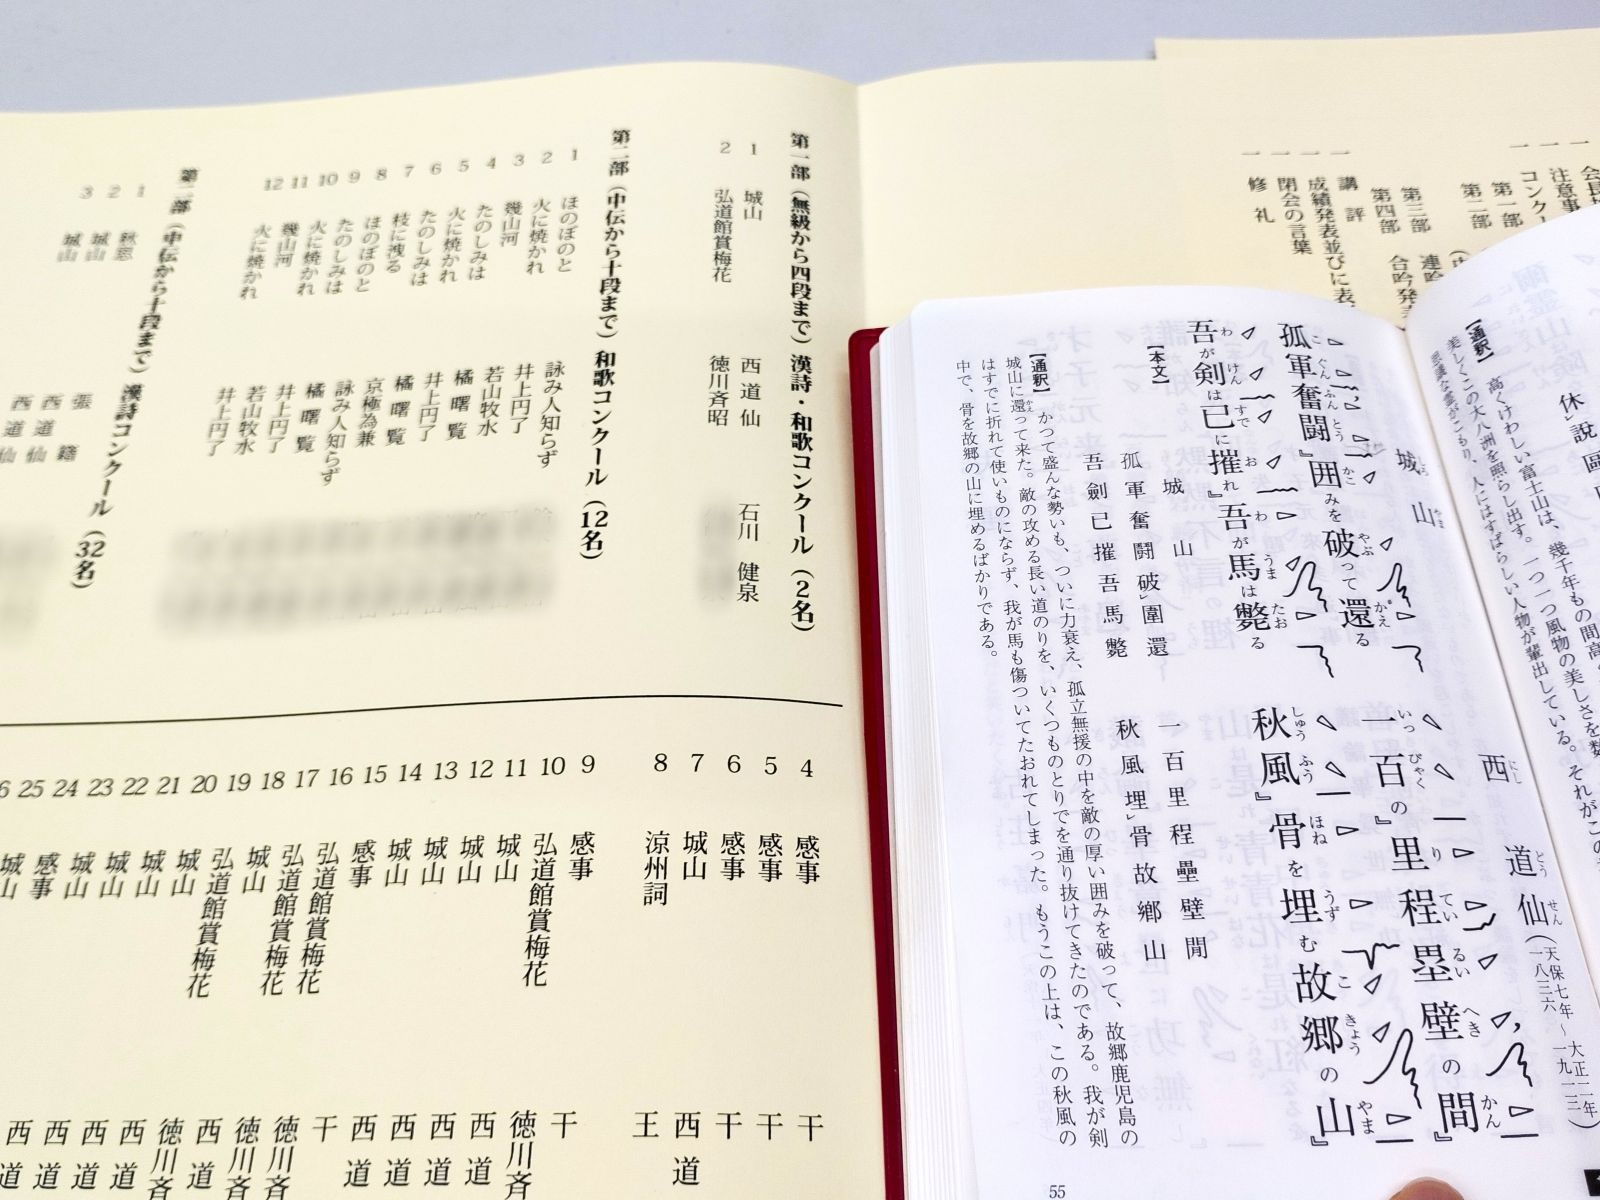 会長挨
注意事
コンクー
第一部
第二部
第三部 連吟
第四部 合吟発表
講評
成績発表並びに表
閉会の言葉
修礼
第一部(無級から四段まで) 漢詩・和歌コンクール(2名)
1 城山 西道仙 石川 健泉
2 弘道館賞梅花 徳川斉昭
第二部(中伝から十段まで) 和歌コンクール(12名)
1 ほのぼのと 詠み人知らず
2 火に焼かれ 井上円了
3 幾山河 若山牧水
4 たのしみは 橘曙覧
5 火に焼かれ 井上円了
6 たのしみは 橘曙覧
7 枝に洩る 京極為兼
8 ほのぼのと 詠み人知らず
9 たのしみは 橘曙覧
10 火に焼かれ 井上円了
11 幾山河 若山牧水
12 火に焼かれ 井上円了
第二部(中伝から十段まで) 漢詩コンクール(32名)
1 秋思 張籍
2 城山 西道仙
3 城山 西道仙
4 感事 干
5 感事 干
6 感事 干
7 城山 西道
8 涼州詞 王
9 感事 干
10 弘道館賞梅花 徳川斉
11 城山 西道
12 城山 西道
13 城山 西道
14 城山 西道
15 感事 干
16 弘道館賞梅花 徳川斉
17 弘道館賞梅花 徳川斉
18 城山 西道
19 弘道館賞梅花 徳川斉
20 城山 西道
21 城山 西道
22 城山 西道
23 城山 西道
24 感事
25 城山
休説
【通釈】 高くけわしい富士山は、幾千年もの間高
美しくこの大八洲を照らし出す。一つ一つ風物の美しさを数
思議な霊がこもり、人にはすばらしい人物が輩出している。それがこの
城山 西道仙(天保七年~大正二年 一八三六~一九一三)
孤軍奮闘』囲みを破って還る 一百の』里程塁壁の間』
吾が剣は已に摧れ』吾が馬は斃る 秋風』骨を埋む故郷の山』
【本文】
城山
孤軍奮闘破レ圍還 一百里程壘壁閒
吾劍已摧吾馬斃 秋風埋レ骨故鄉山
【通釈】 かつて盛んな勢いも、ついに力衰え、孤立無援の中を敵の厚い囲みを破って、故郷鹿児島の
城山に還って来た。敵の攻める長い道のりを、いくつものとりでを通り抜けてきたのである。我が剣
はすでに折れて使いものにならず、我が馬も傷ついてたおれてしまった。もうこの上は、この秋風の
中で、骨を故郷の山に埋めるばかりである。
55